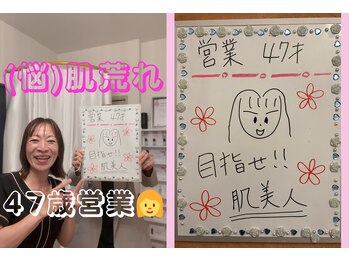 (悩)肌荒れ
営業 47才
目指せ!!
肌美人
47歳営業👩
営業 47才
目指せ!!
肌美人